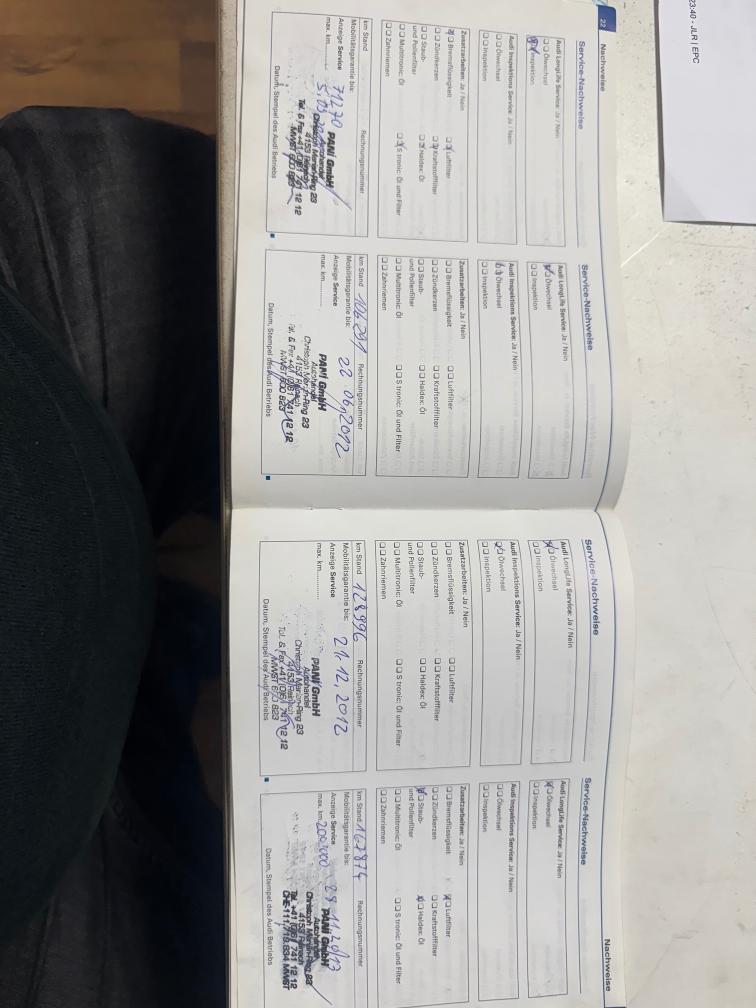 23:40 - JLR | EPC
22
Nachweise
Service-Nachweise
Audi LongLife Service: Ja / Nein
Ölwechsel
Inspektion
Audi Inspektions Service: Ja / Nein
Ölwechsel
Inspektion
Zusatzarbeiten: Ja / Nein
Bremsflüssigkeit Luftfilter
Zündkerzen Kraftstofffilter
Staub- Haldex: Öl
und Pollenfilter
Multitronic: Öl S tronic: Öl und Filter
Zahnriemen
km Stand Rechnungsnummer
Mobilitätsgarantie bis:
Anzeige Service
max. km
PANI GmbH
Autohandel
Christoph Merian-Ring 23
4153 Reinach
Tel. & Fax +41 (0)61 741 12 12
MWST 670 823
Datum, Stempel des Audi Betriebs
Service-Nachweise
Audi LongLife Service: Ja / Nein
Ölwechsel
Inspektion
Audi Inspektions Service: Ja / Nein
Ölwechsel
Inspektion
Zusatzarbeiten: Ja / Nein
Bremsflüssigkeit Luftfilter
Zündkerzen Kraftstofffilter
Staub- Haldex: Öl
und Pollenfilter
Multitronic: Öl S tronic: Öl und Filter
Zahnriemen
km Stand 106291 Rechnungsnummer
Mobilitätsgarantie bis:
22.06.2012
Anzeige Service
max. km
PANI GmbH
Autohandel
Christoph Merian-Ring 23
4153 Reinach
Tel. & Fax +41 (0)61 741 12 12
MWST 670 823
Datum, Stempel des Audi Betriebs
Service-Nachweise
Audi LongLife Service: Ja / Nein
Ölwechsel
Inspektion
Audi Inspektions Service: Ja / Nein
Ölwechsel
Inspektion
Zusatzarbeiten: Ja / Nein
Bremsflüssigkeit Luftfilter
Zündkerzen Kraftstofffilter
Staub- Haldex: Öl
und Pollenfilter
Multitronic: Öl S tronic: Öl und Filter
Zahnriemen
km Stand 128996 Rechnungsnummer
Mobilitätsgarantie bis:
21.12.2012
Anzeige Service
max. km
PANI GmbH
Autohandel
Christoph Merian-Ring 23
4153 Reinach
Tel. & Fax +41 (0)61 741 12 12
MWST 670 823
Datum, Stempel des Audi Betriebs
Nachweise
Service-Nachweise
Audi LongLife Service: Ja / Nein
Ölwechsel
Inspektion
Audi Inspektions Service: Ja / Nein
Ölwechsel
Inspektion
Zusatzarbeiten: Ja / Nein
Bremsflüssigkeit Luftfilter
Zündkerzen Kraftstofffilter
Staub- Haldex: Öl
und Pollenfilter
Multitronic: Öl S tronic: Öl und Filter
Zahnriemen
km Stand 167874 Rechnungsnummer
Mobilitätsgarantie bis:
28.11.2013
Anzeige Service
max. km 200'000
PANI GmbH
Autohandel
Christoph Merian-Ring 23
4153 Reinach
Tel. +41 (0)61 741 12 12
CHE-111.719.634 MWST
Datum, Stempel des Audi Betriebs